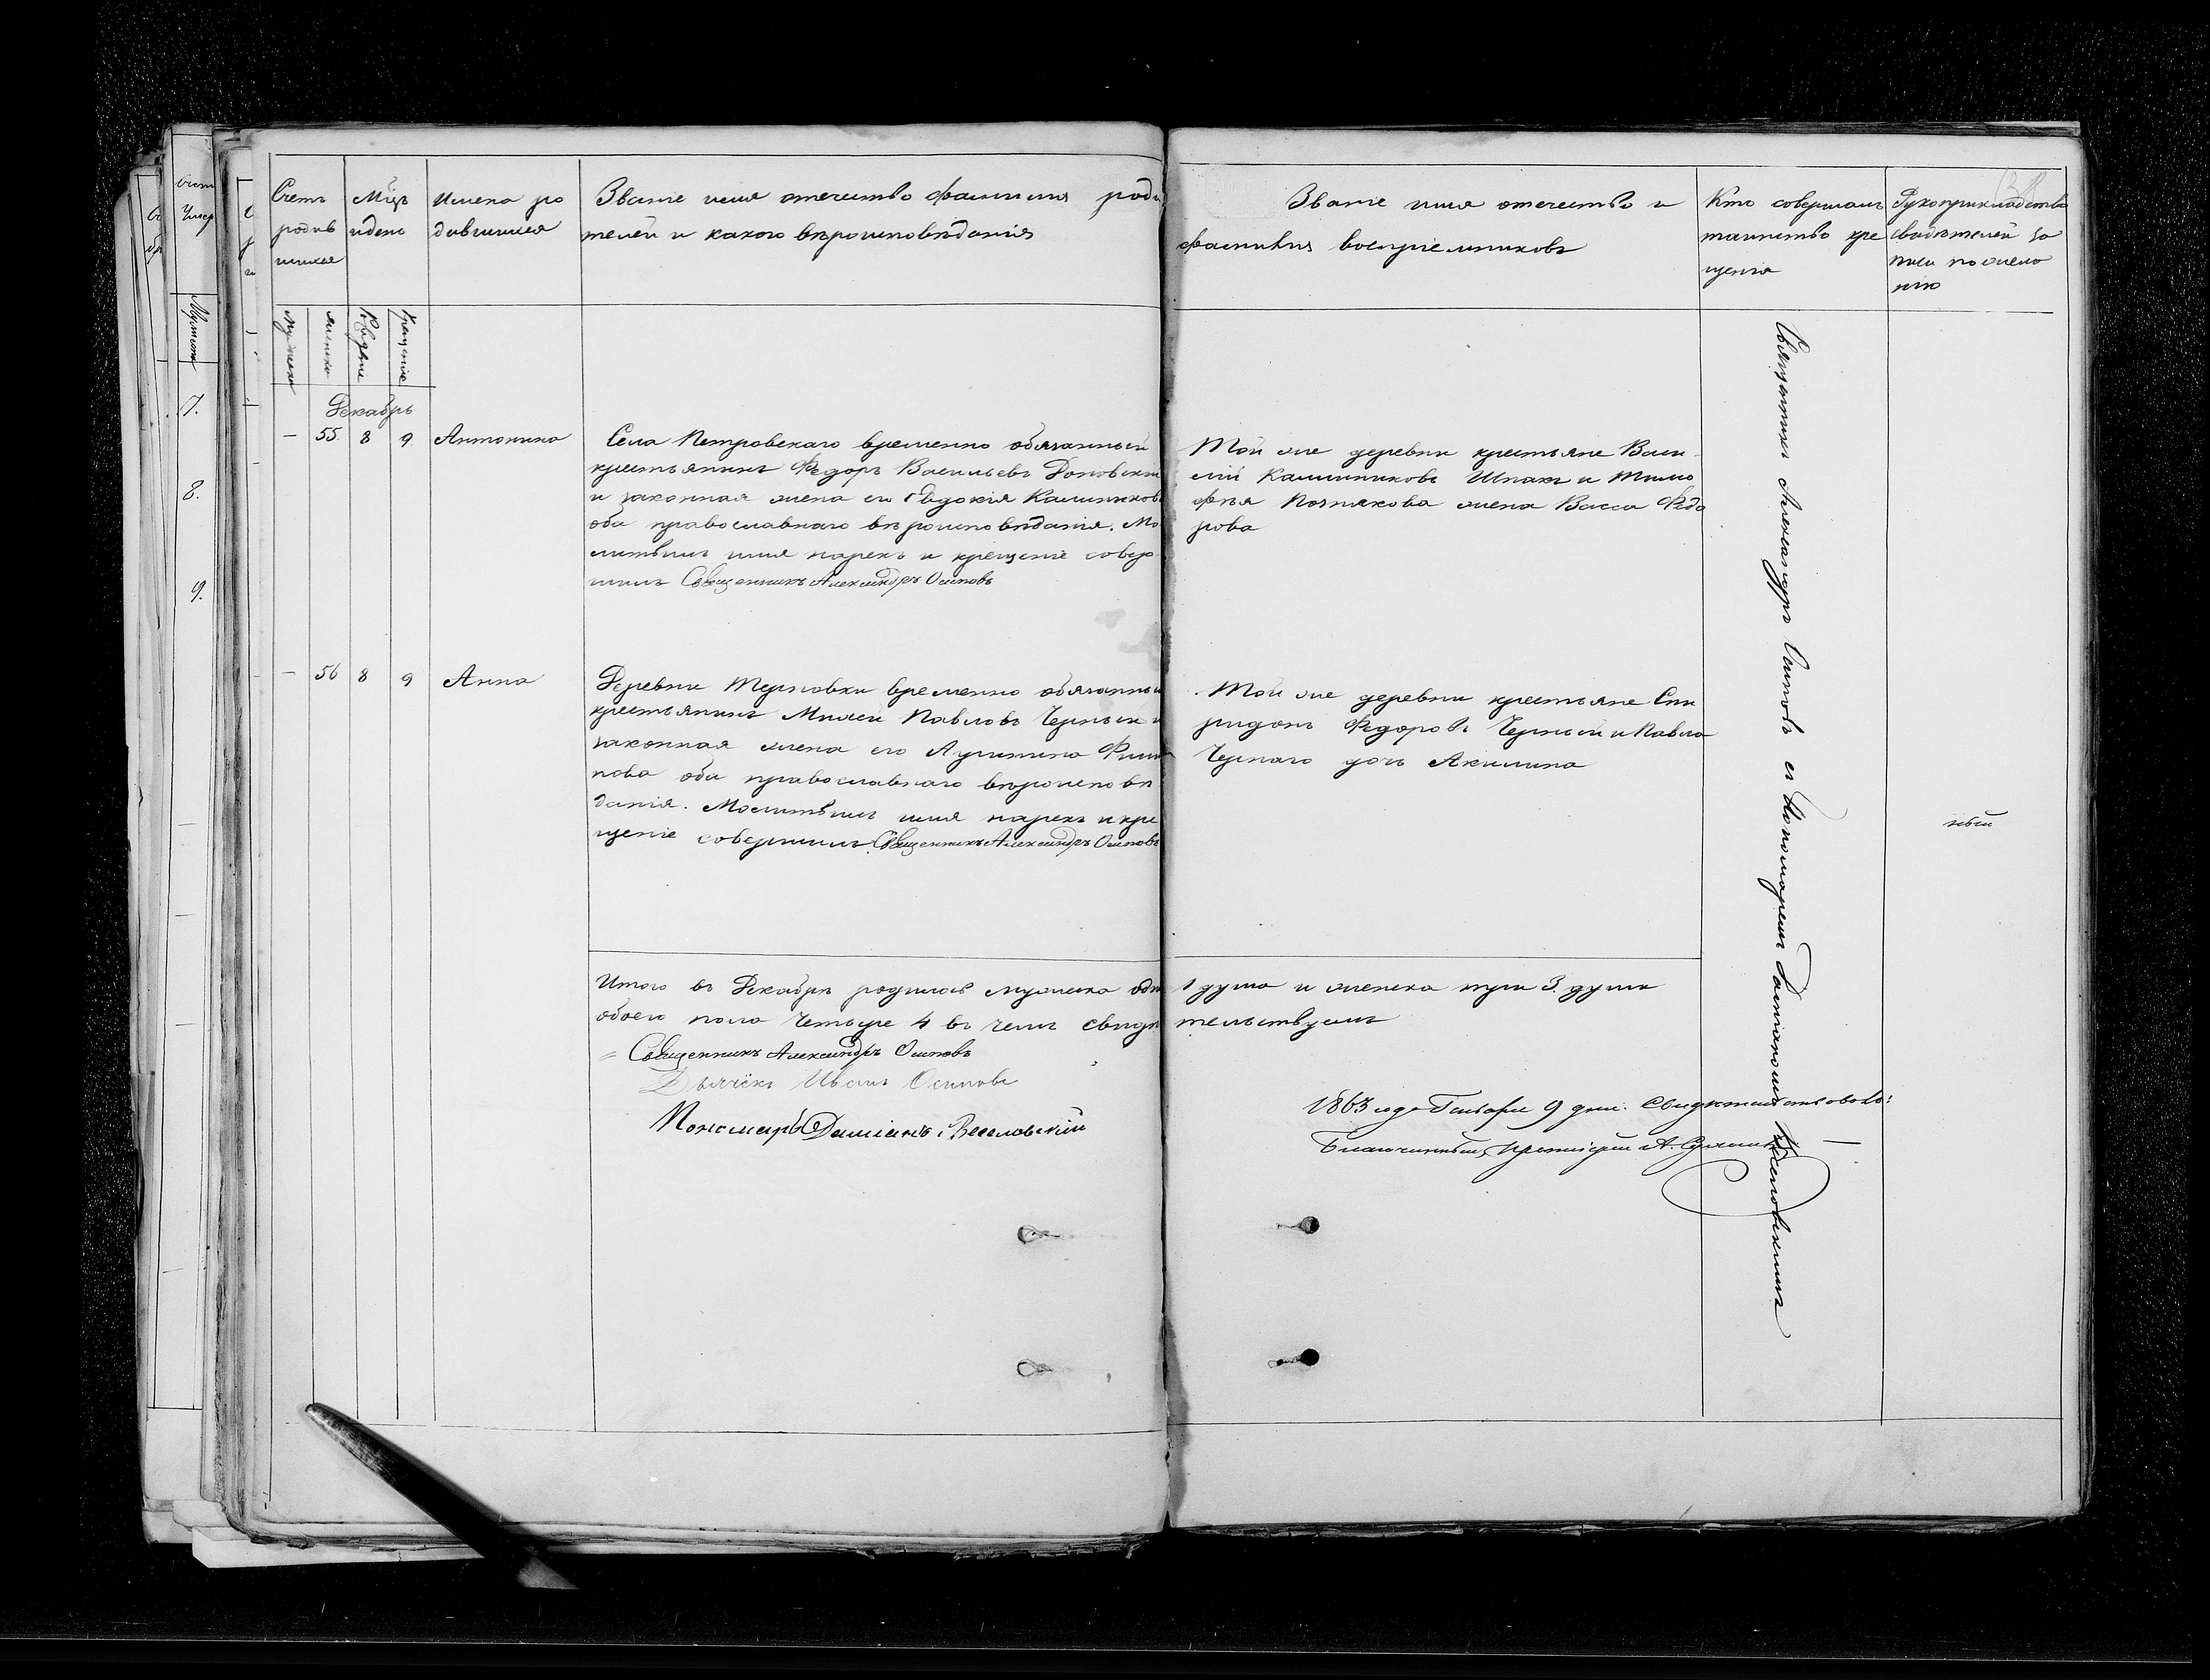 Счетъ родив шихся
Мѣц. и день
Имена ро дившихся
Званіе имя отечество фамилія роди
телей и какого вѣроисповѣданія
Званіе имя отечество и
фамилія воспріемниковъ
Кто совершалъ
таинство кре
щенія
Рукоприкладство
свидѣтелей за
писи по жела
нію
Мужеска
женска
Рожденіе
Крещеніе
Декабрь
— 55. 8 9 Антонина
Села Петровскаго временно обязанный
крестьянинъ Федоръ Васильевъ
и законная жена его Евдокія Калинников
оба православнаго вѣроисповѣданія. Мо
литвилъ имя нарекъ и крещеніе совер
шилъ Священникъ Александръ Осиповъ
Той же деревни крестьяне Васи
лій Калинниковъ Шпакъ и Тимо
фѣя Познякова жена Васса Федо
рова
— 56 8 9 Анна
Деревни Терновки временно обязанный
крестьянинъ Михей Павловъ Черный и
законная жена его Агрипина Фили
пова оба православнаго вѣроисповѣ
данія. Молитвилъ имя нарекъ и кре
щеніе совершилъ Священникъ Александръ Осиповъ
Той же деревни крестьяне Спи
ридонъ Федоровъ Черный и Павла
Чернаго дочь Акилина
Священникъ Александръ Осиповъ съ Пономаремъ Даміаномъ Веселовскимъ
Итого въ Декабрѣ родилось мужеска одн
1 душа и женска три 3. души
обоего пола четыре 4 въ чемъ свидѣ
тельствуемъ
Священникъ Александръ Осиповъ
Дьячёкъ Иванъ Осиповъ
Пономарь Даміанъ Веселовскій
1863 года Генваря 9 дня. Свидетельствовалъ:
Благочинный, протоіерей А.
7.
8.
9.